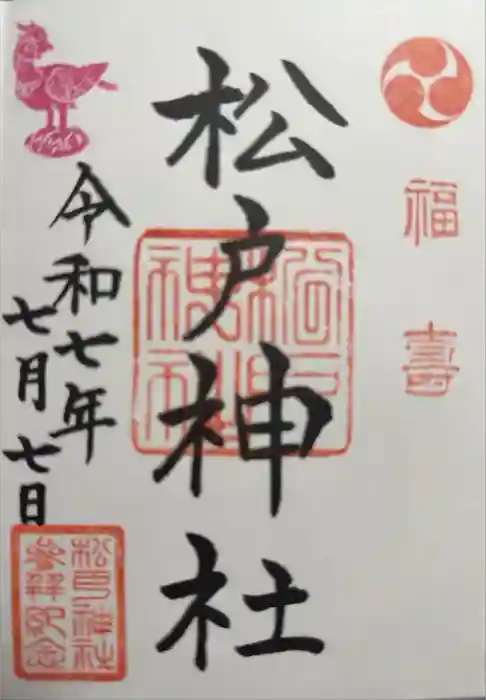 福壽
松戸神社
松戸神社
令和七年
七月七日
松戸神社
参拝記念